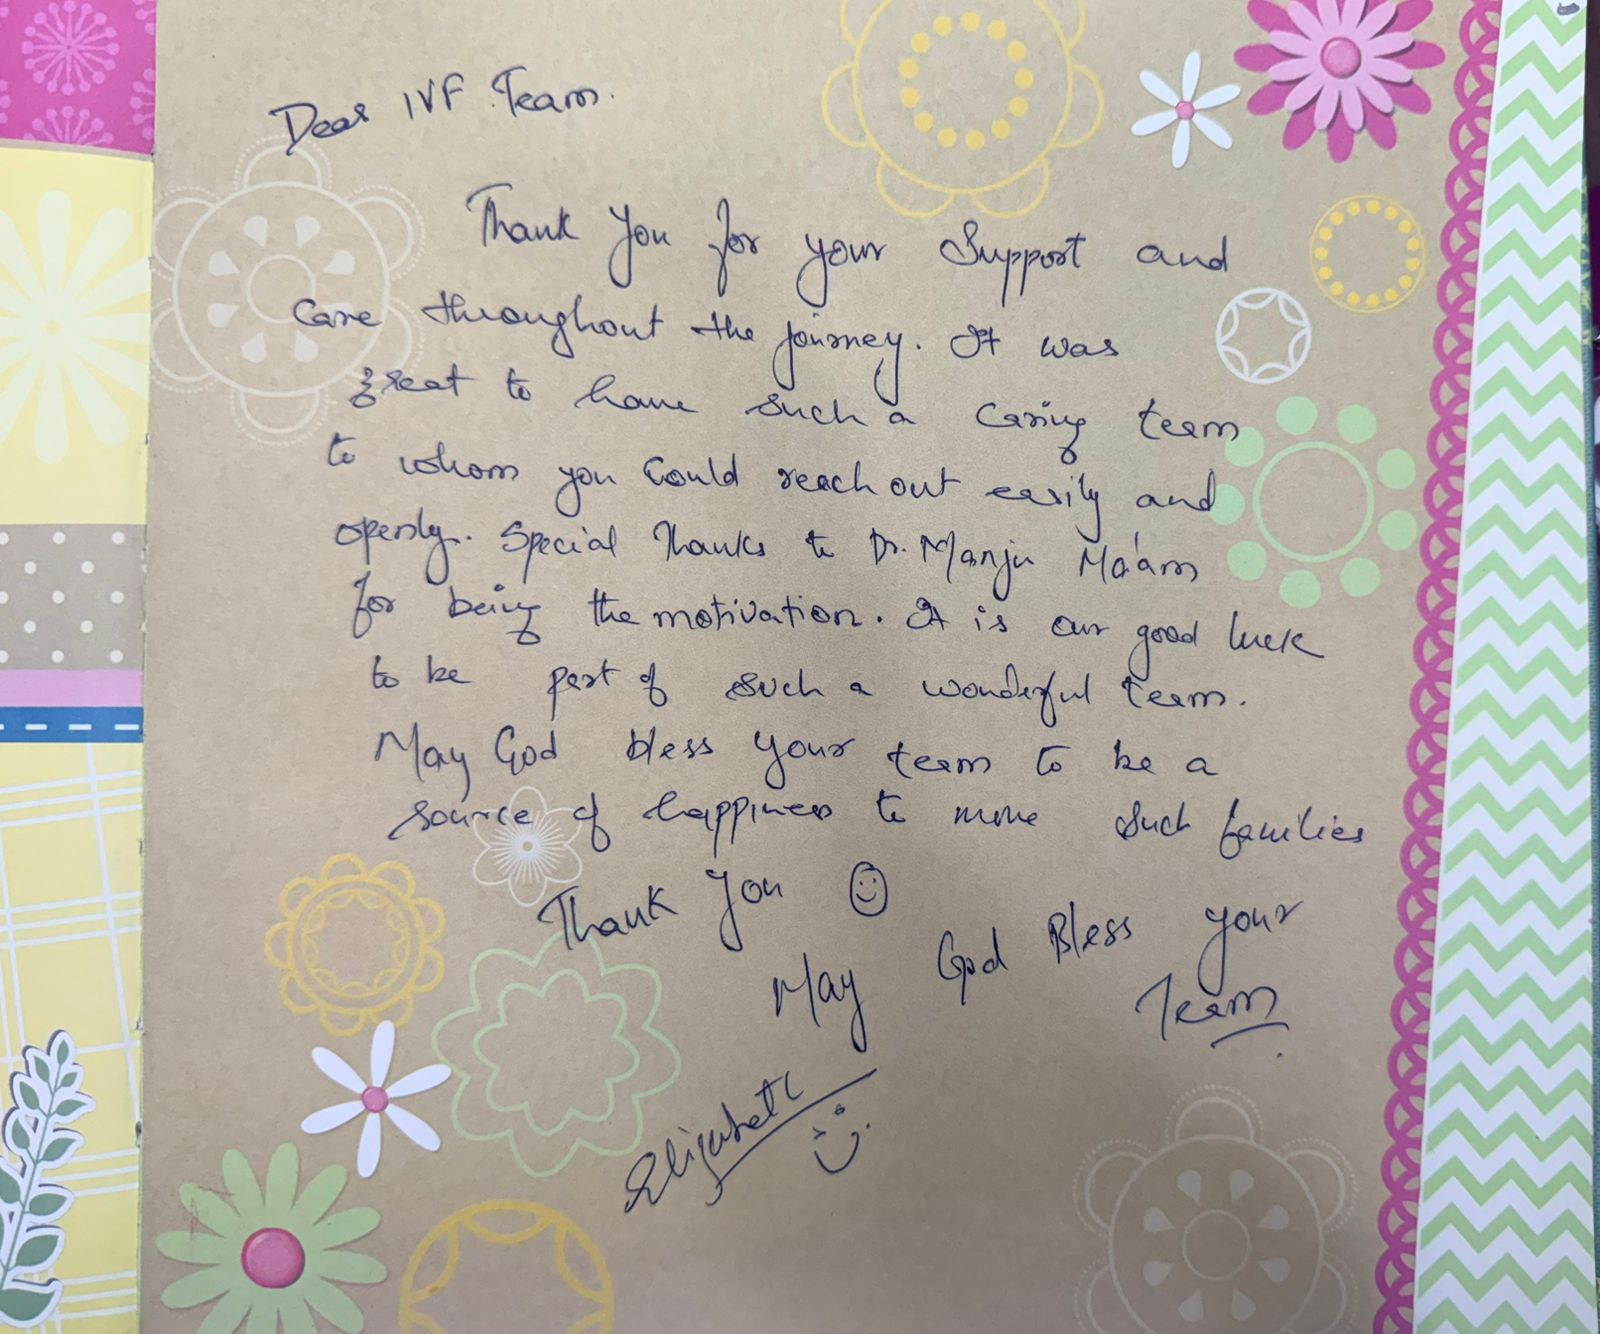 Dear IVF Team.
Thank You for your Support and
Care throughout the journey. It was
great to have such a caring team
to whom you could reach out easily and
openly. Special Thanks to Dr. Manju Ma'am
for being the motivation. It is our good luck
to be part of such a wonderful team.
May God bless your team to be a
source of happiness to more such families
Thank You ☺
May God Bless your
Team.
Elizabeth